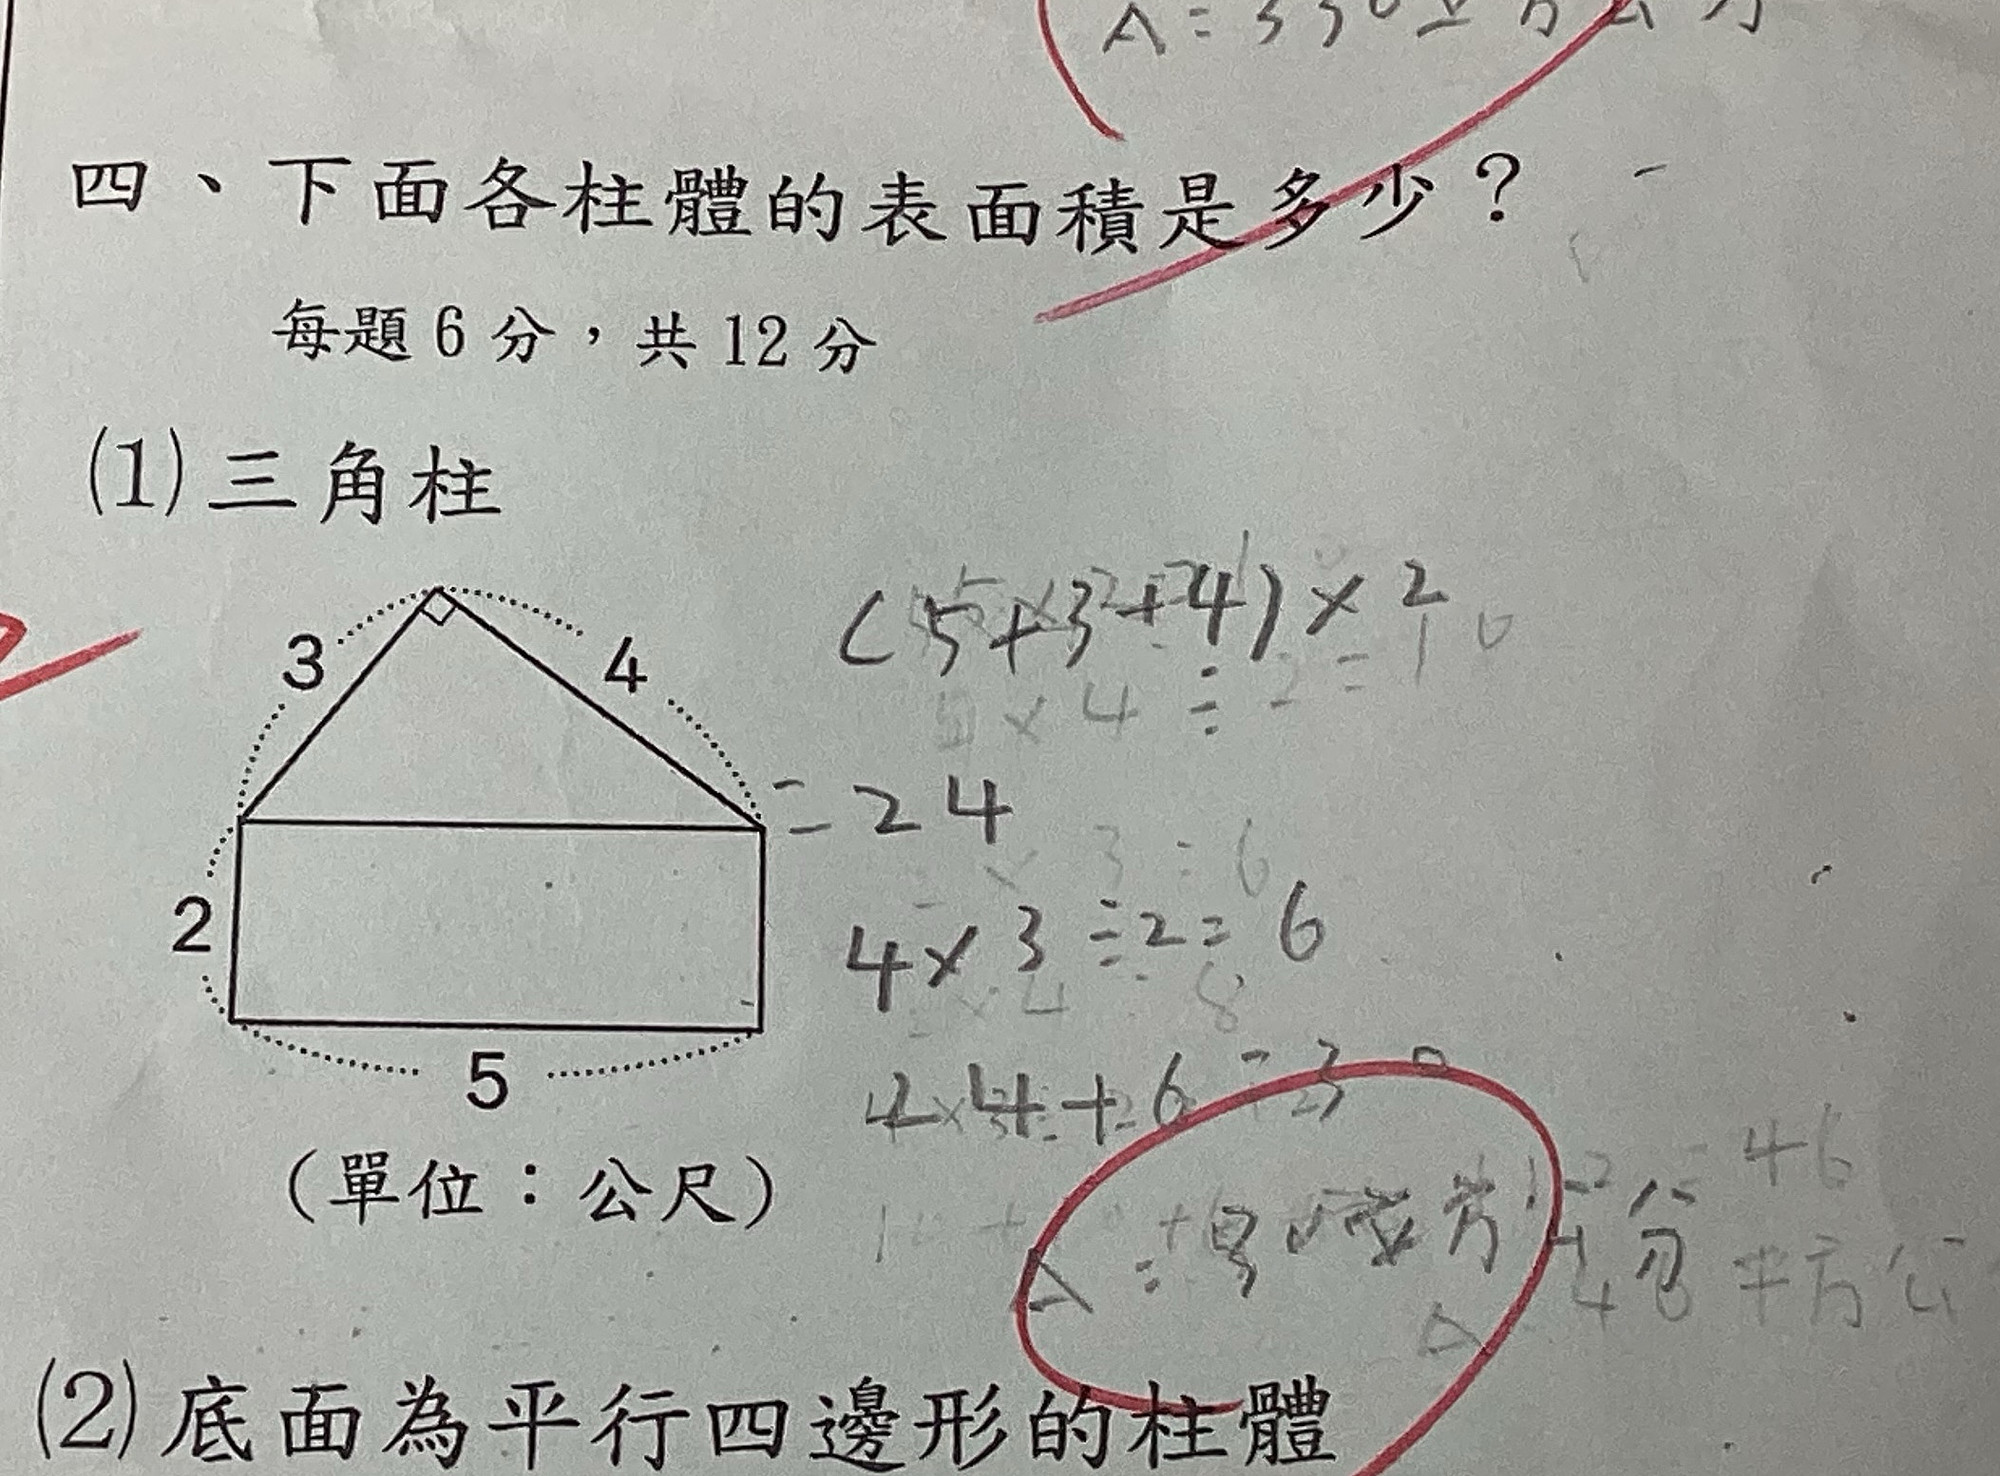 A = 330 立方公分
四、下面各柱體的表面積是多少？
每題 6 分，共 12 分
(1) 三角柱
3
4
2
5
(單位：公尺)
(5+3+4)×2
=24
4×3÷2=6
24+6=30
(2) 底面為平行四邊形的柱體